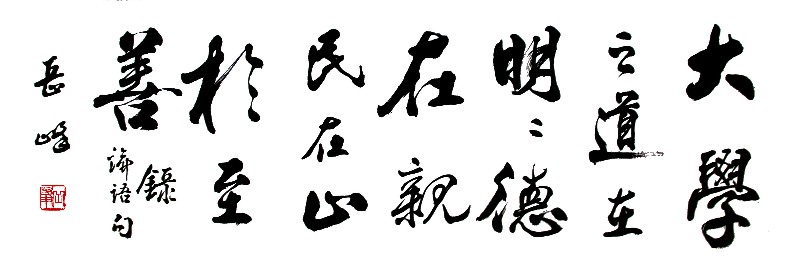 大學
之道在
明〻德
在親
民在止
於至
善
錄
論語句
岳峰